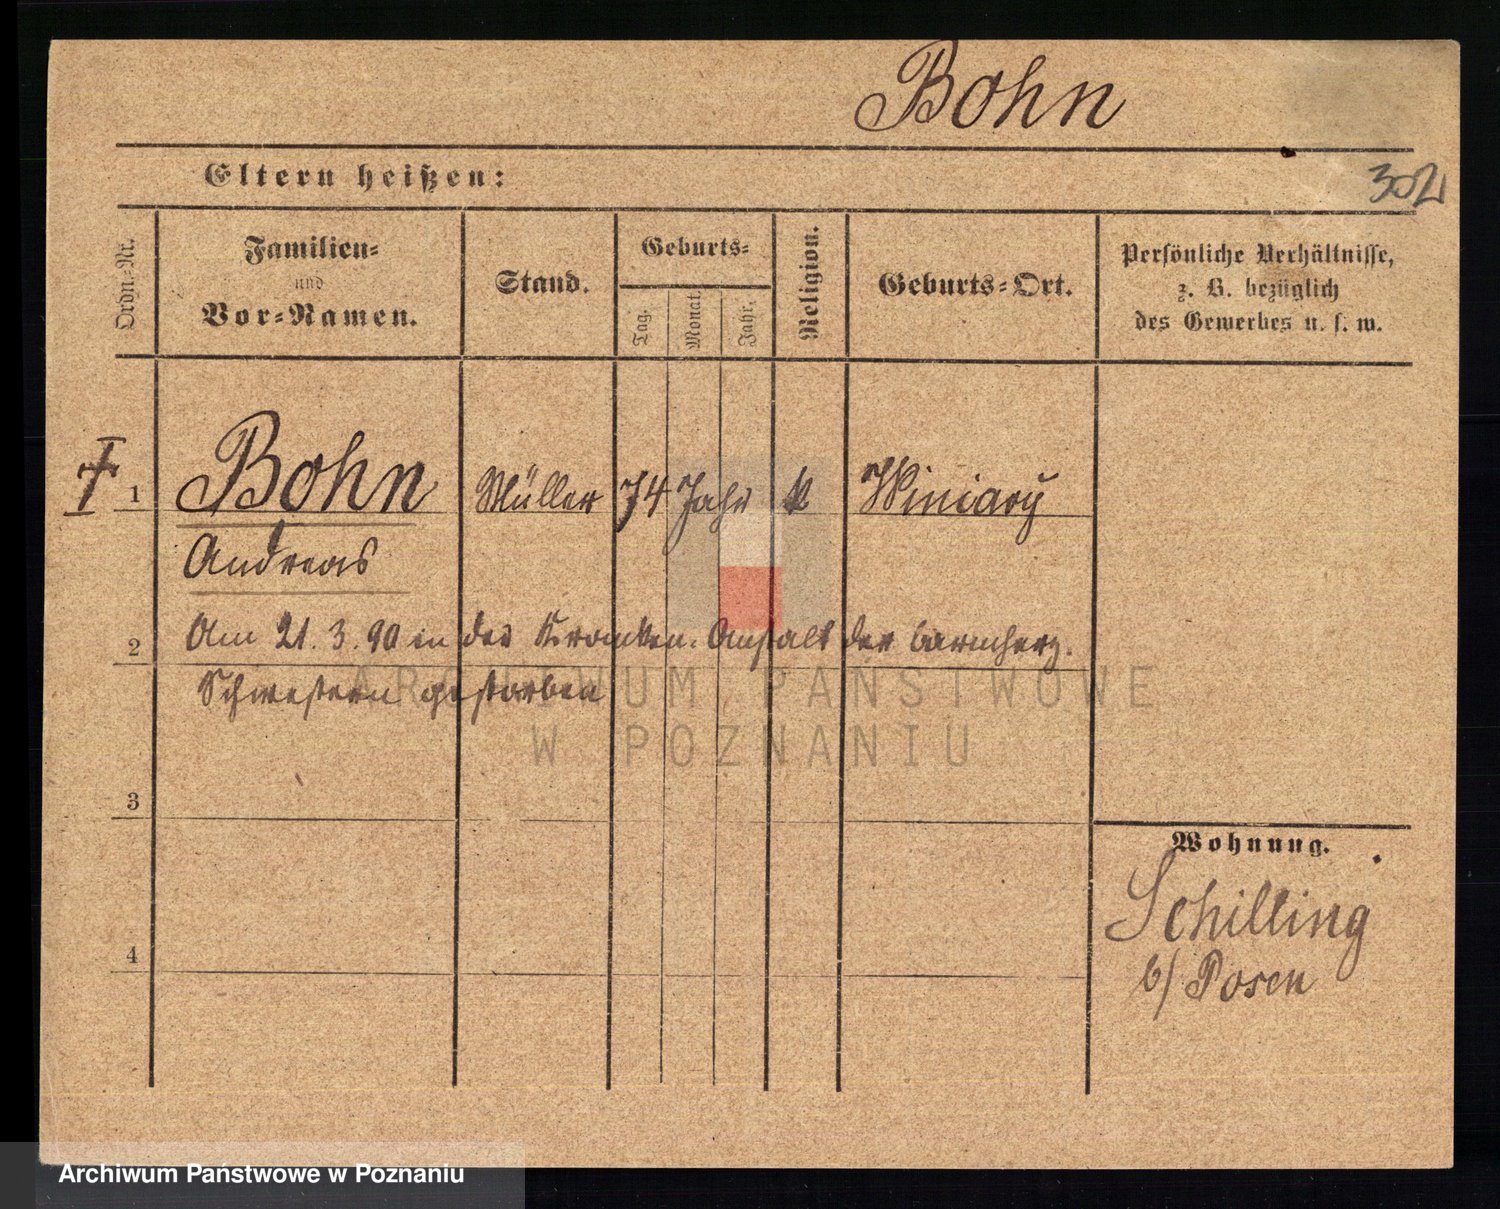 Bohn
Eltern heißen:
302
Ordn-Nr.
Familien-
und
Vor-Namen.
Stand.
Geburts-
Tag.
Monat.
Jahr.
Religion.
Geburts-Ort.
Persönliche Verhältnisse,
z. B. bezüglich
des Gewerbes u. s. w.
† 1 Bohn Müller 74 Jahr k Winiary
Andreas
2 Am 21. 3. 90 in der Kranken-Anstalt der barmherz.
Schwestern gestorben
ARCHIWUM PAŃSTWOWE
W POZNANIU
3
Wohnung.
Schilling
4
b/ Posen
Archiwum Państwowe w Poznaniu